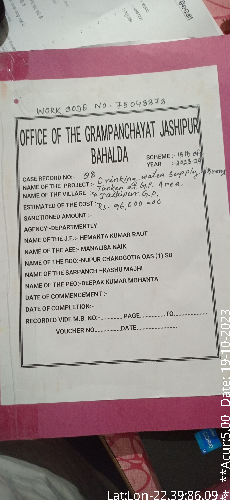 WORK CODE NO - 75048378
OFFICE OF THE GRAMPANCHAYAT JASHIPUR
BAHALDA
SCHEME :- 15th
YEAR :- 2023-24
CASE RECORD NO:- 98
NAME OF THE PROJECT :- Drinking water supply through
NAME OF THE VILLAGE :- Tanker at G.P. Area.
ESTIMATED OF THE COST :- Rs. 96,000=00
Jashipur G.P.
SANCTIONED AMOUNT :-
AGENCY-DEPARTMENTLY
NAME OF THE J.E :- HEMANTA KUMAR RAUT
NAME OF THE AEE:- MANALISA NAIK
NAME OF THE BDO:-NUPUR CHANDGOTIA OAS (1) SB
NAME OF THE SARPANCH :-RASHU MAJHI
NAME OF THE PEO:-DEEPAK KUMAR MOHANTA
DATE OF COMMENCEMENT :-
DATE OF COMPLETION:-
RECORDED VIDE M.B. NO:-..............PAGE..............TO..............
VOUCHER NO..............DATE..............
**Acur:5.00 Date: 19-10-2023
Lat:Lon-22.39:86.09